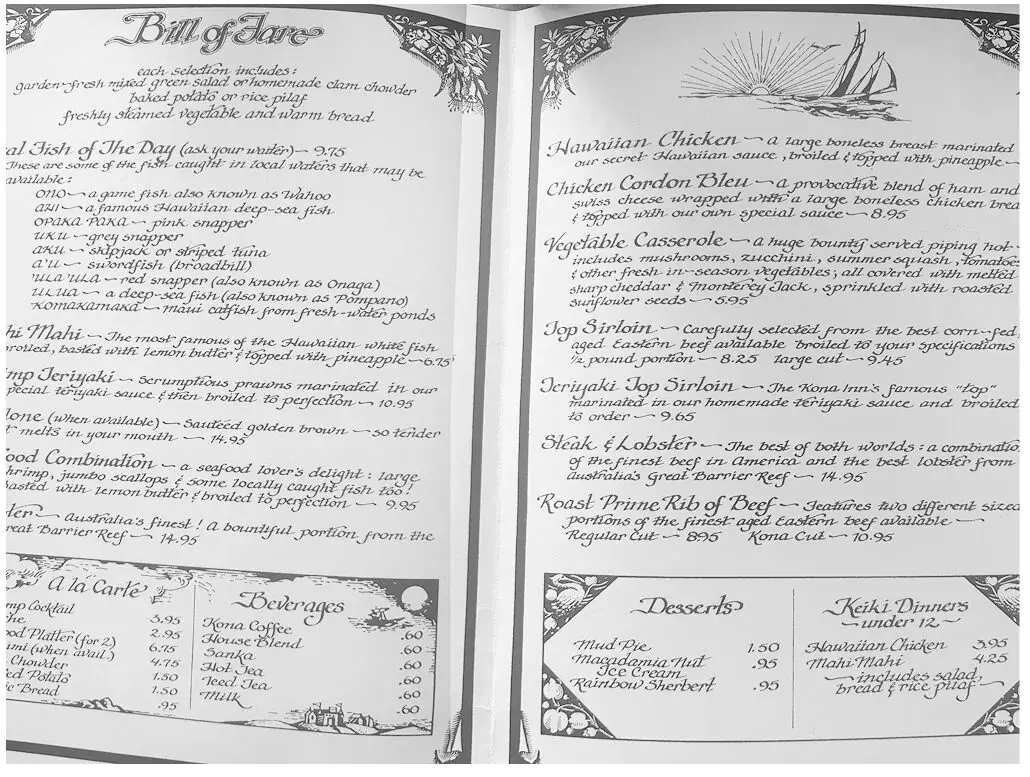 Bill of Fare
each selection includes:
garden-fresh mixed green salad or homemade clam chowder
baked potato or rice pilaf
freshly steamed vegetable and warm bread
al Fish of The Day (ask your waiter) — 9.75
These are some of the fish caught in local waters that may be
available:
ONO — a game fish also known as Wahoo
AHI — a famous Hawaiian deep-sea fish
OPAKA PAKA — pink snapper
UKU — grey snapper
AKU — skipjack or striped tuna
A'U — swordfish (broadbill)
'ULA 'ULA — red snapper (also known as Onaga)
ULUA — a deep-sea fish (also known as Pompano)
KOMAKAMAKA — maui catfish from fresh-water ponds
hi Mahi — The most famous of the Hawaiian white fish
broiled, basted with lemon butter & topped with pineapple — 6.75
mp Teriyaki — Scrumptious prawns marinated in our
pecial teriyaki sauce & then broiled to perfection — 10.95
lone (when available) — Sauteed golden brown — so tender
t melts in your mouth — 14.95
ood Combination — a seafood lover's delight: large
hrimp, jumbo scallops & some locally caught fish too!
asted with lemon butter & broiled to perfection — 9.95
ter — Australia's finest! A bountiful portion from the
reat Barrier Reef — 14.95
A lá Carte
mp Cocktail 3.95
he 2.95
ood Platter (for 2) 6.75
imi (when avail.) 4.75
Chowder 1.50
ed Potato 1.50
ic Bread .95
Beverages
Kona Coffee .60
House Blend .60
Sanka .60
Hot Tea .60
Iced Tea .60
Milk .60
Hawaiian Chicken — a large boneless breast marinated
our secret Hawaiian sauce, broiled & topped with pineapple —
Chicken Cordon Bleu — a provocative blend of ham and
swiss cheese wrapped with a large boneless chicken brea
& topped with our own special sauce — 8.95
Vegetable Casserole — a huge bounty served piping hot
includes mushrooms, zucchini, summer squash, tomatoes
& other fresh in-season vegetables; all covered with melted
sharp cheddar & Monterey Jack, sprinkled with roasted
sunflower seeds — 5.95
Top Sirloin — Carefully selected from the best corn-fed,
aged Eastern beef available broiled to your specifications
½ pound portion — 8.25 large cut — 9.45
Teriyaki Top Sirloin — The Kona Inn's famous "top"
marinated in our homemade teriyaki sauce and broiled
to order — 9.65
Steak & Lobster — The best of both worlds: a combinatio
of the finest beef in America and the best lobster from
Australia's Great Barrier Reef — 14.95
Roast Prime Rib of Beef — Features two different sized
portions of the finest aged Eastern beef available —
Regular Cut — 895 Kona Cut — 10.95
Desserts
Mud Pie 1.50
Macadamia Nut .95
Ice Cream
Rainbow Sherbert .95
Keiki Dinners
— under 12 —
Hawaiian Chicken 3.95
Mahi Mahi 4.25
— includes salad,
bread & rice pilaf —